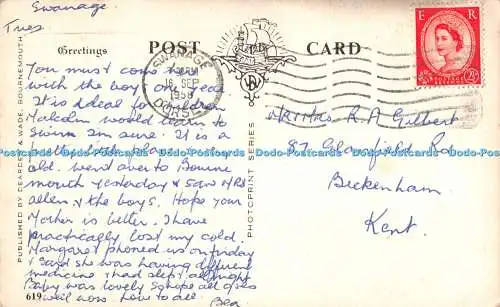 Swanage
Tues
Greetings
POST CARD
SWANAGE
16 SEP
1958
DORSET
E R
POSTAGE REVENUE
2½D
You must come here
with the boy one year
It is ideal for children
Malcolm would learn to
swim I'm sure. It is a
pretty little place &
old. went over to Bourne
mouth yesterday & saw Mrs
allen & the boys. Hope your
Mother is better. I have
practically lost my cold.
Margaret phoned us on friday
& said she was having different
medicine & had slept all night
Baby was lovely so hope all goes
well now. love to all
Bea
Mr & Mrs R A Gilbert
87 Rd
Beckenham
Kent.
PUBLISHED BY DEARDEN & WADE, BOURNEMOUTH
PHOTCPRINT SERIES
619
www.WorldwidePostcards.com